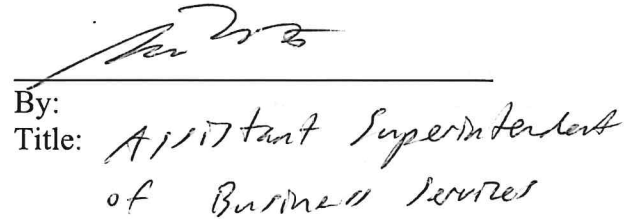 By:
Title: Assistant Superintendent
of Business Services